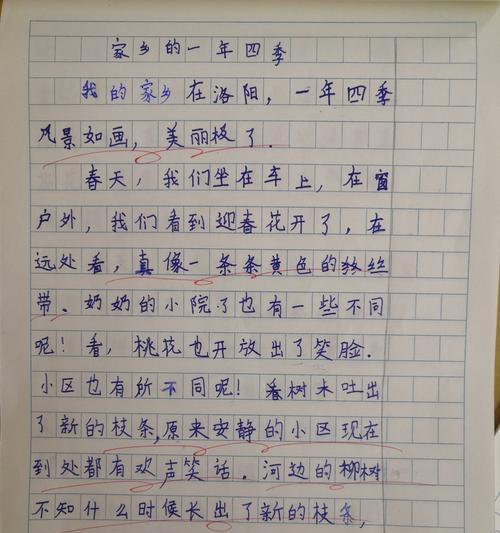 家乡的一年四季
我的家乡在洛阳，一年四季
风景如画，美丽极了.
春天，我们坐在车上，在窗
户外，我们看到迎春花开了，在
远处看，真像一条条黄色的丝
带.奶奶的小院了也有一些不同
呢！看，桃花也开放出了笑脸.
小区也有所不同呢！看树木吐出
了新的枝条,原来安静的小区现在
到处都有欢声笑话.河边的柳树
不知什么时候长出了新的枝条，